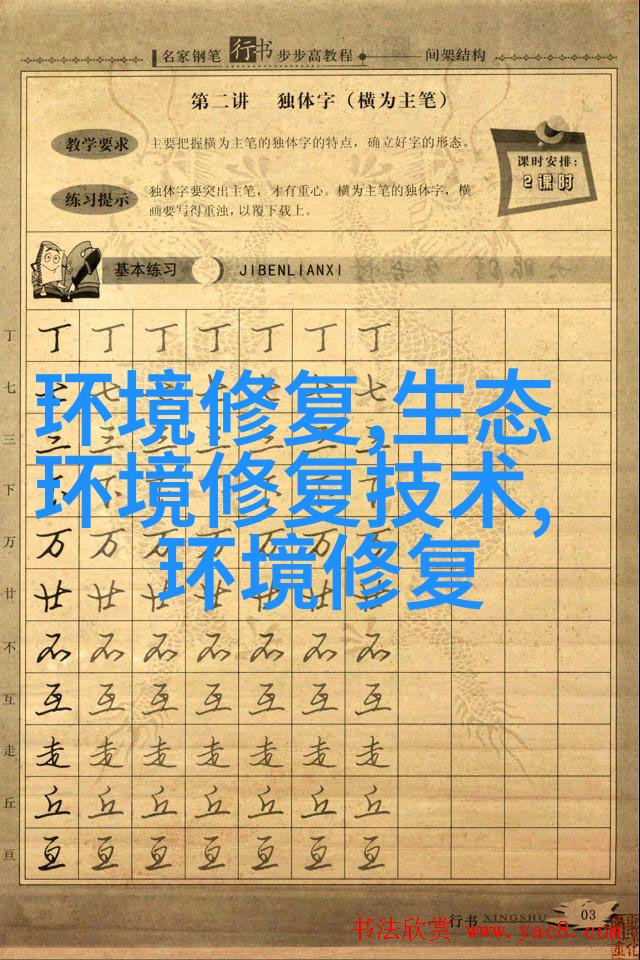 名家钢笔 行书 步步高教程 间架结构
第二讲 独体字（横为主笔）
教学要求
主要把握横为主笔的独体字的特点，确立好字的形态。
课时安排：
2课时
练习提示
独体字要突出主笔，才有重心。横为主笔的独体字，横
画要写得重浊，以覆下载上。
基本练习 JIBENLIANXI
丁 丁 丁 丁 丁 丁 丁 丁
七 七 七 七 七 七 七 七
环境修复,生态
三 三 三 三 三 三 三 三
环境修复技术,
下
万 万 万 万 万 万 万 万
环境修复
廿 廿 廿 廿 廿 廿 廿 廿
不 不 不 不 不 不 不 不
互 互 互 互 互 互 互 互
走 走 走 走 走 走 走 走
丘 丘 丘 丘 丘 丘 丘 丘
亘 亘 亘 亘 亘 亘 亘 亘
行书 XINGSHU 03
书法欣赏 www.yac8.com